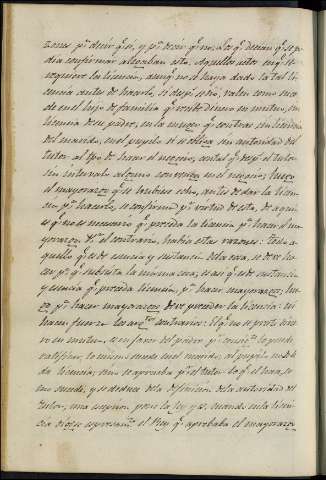 zones pª decir qe sí, y pª decir qe no. Los qe decian qe se po
dia confirmar alegaban esto. Aquellos actos en qe se
requiere la licencia, aunqe no se haya dado la tal li
cencia antes de hacerlo, se despª se dió, valen como suce
de en el hijo de familia qe recibe dinero en mutuo, sin
licencia de su padre, en la muger qe contrae sin licencia
del marido, en el pupilo qe se obliga sin autoridad del
tutor al tpo de hacer el negocio, con tal qe despª el tutor
sin intervalo alguno convenga en el negocio; luego
el mayorazgo qe se hubiese echo, antes de dar la licen
cia pª hacerlo, se confirma pr virtud de esta, de aqui
es qe no es necesario qe preceda la licencia pª hacer el ma
yorazgo. Pr el contrario, habia estas razones: Todo a
quello qe es de esencia y sustancia de la cosa, se deve ha
cer pª qe subsista la misma cosa, es asi qe es de sustancia
y esencia qe preceda licencia, pª hacer mayorazgo; lue
go pª hacer mayorazgo deve preceder la licencia: ni
hacen fuerza los argtos contrarios: El qe no se preste dine
ro en mutuo, es en favor del padre pr consigte lo puede
ratificar, lo mismo sucede en el marido; al pupilo no le
da licencia, sino se aprueba pr el tutor lo qe el hace, se
ino sucede, y se deduce de la definicion de la autoridad del
tutor; una cuestion pone la ley y es: cuando en la licen
cia dijese espresamte el Rey qe aprobaba el mayorazgo